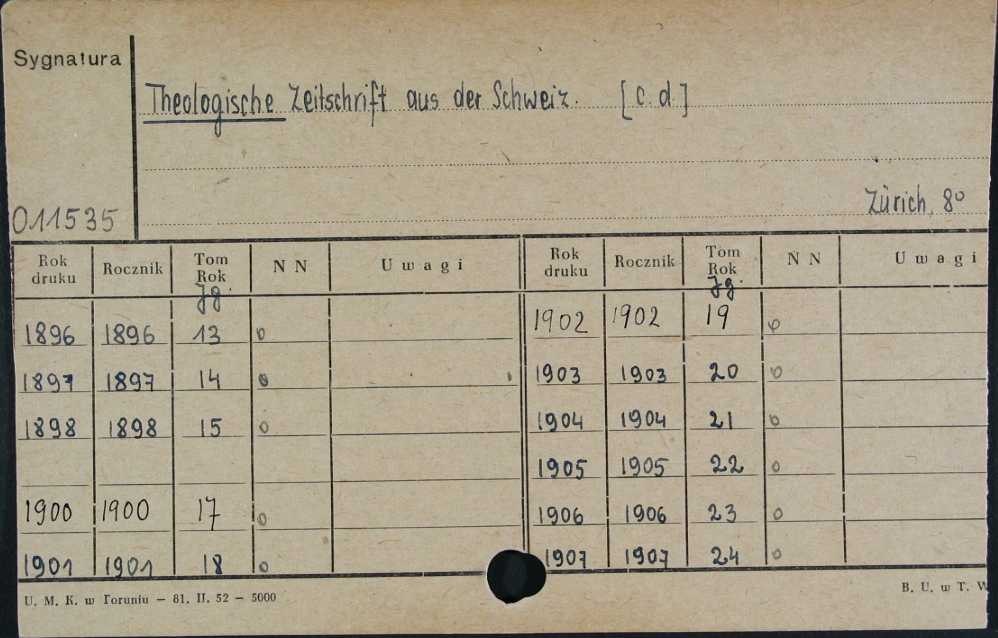 Sygnatura
Theologische Zeitschrift aus der Schweiz. [c. d.]
Zürich, 8°
011535
Rok druku Rocznik Tom Rok Jg. N N Uwagi Rok druku Rocznik Tom Rok Jg. N N Uwagi
1896 1896 13 0 1902 1902 19 0
1897 1897 14 0 1903 1903 20 0
1898 1898 15 0 1904 1904 21 0
1905 1905 22 0
1900 1900 17 0 1906 1906 23 0
1901 1901 18 0 1907 1907 24 0
U. M. K. w Toruniu — 81. II. 52 — 5000 B. U. w T. W